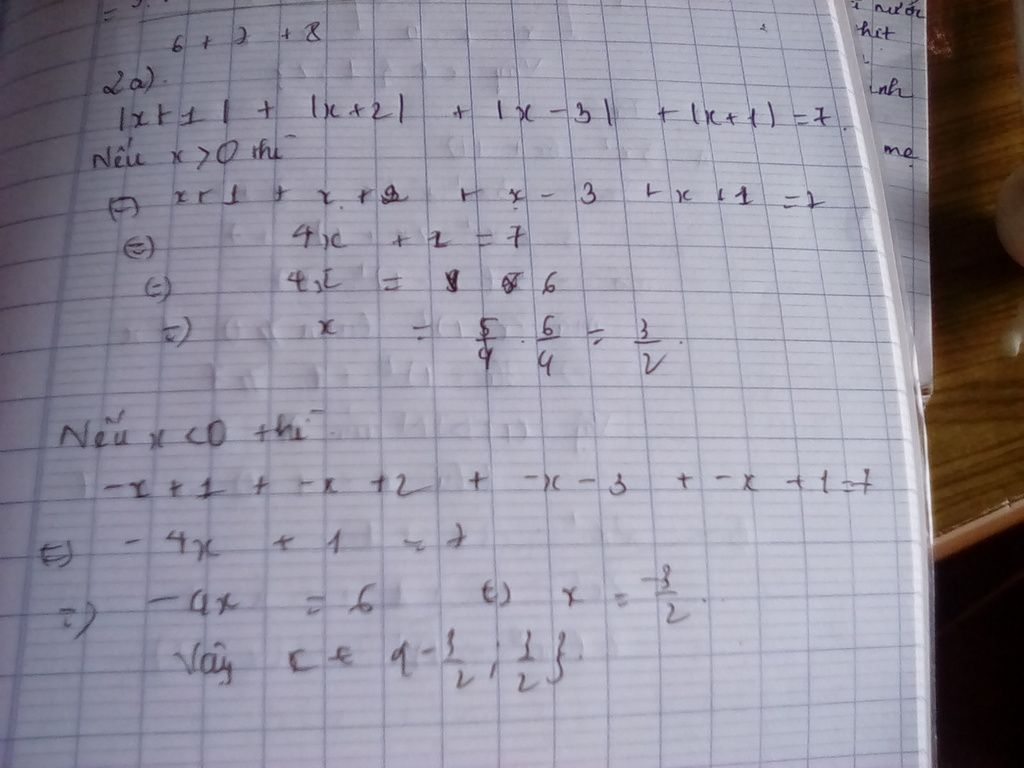 6 + 7 + 8
2a)
|x+1| + |x+2| + |x-3| + |x+1| = 7.
Nếu x > 0 thì
(=) x+1 + x + 2 + x - 3 + x + 1 = 7
(=) 4x + 1 = 7
(=) 4x = 6
=) x = 5/4 . 6/4 = 3/2.
Nếu x < 0 thì
-x+1 + -x +2 + -x - 3 + -x + 1 = 7
(=) - 4x + 1 = 7
=) -4x = 6 (=) x = -3/2.
Vậy x ∈ {-3/2 ; 3/2}.
nước
hết
inh
mẹ